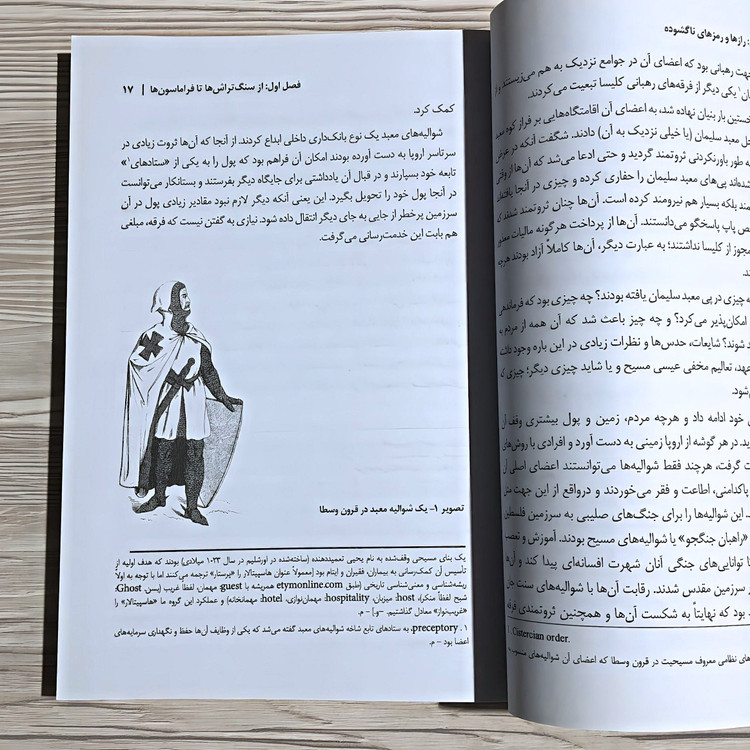 : رازها و رمزهای ناگشوده
جهت رهبانی بود که اعضای آن در جوامع نزدیک به هم می‌زیستند و از
یکی دیگر از فرقه‌های رهبانی کلیسا تبعیت می‌کردند.
خستین بار بنیان نهاده شد، به اعضای آن اقامتگاه‌هایی بر فراز کوه معبد
حل معبد سلیمان (یا خیلی نزدیک به آن) دادند. شگفت آنکه در عرض
ه طور باورنکردنی ثروتمند گردید و حتی ادعا می‌شد که آن‌ها از وقتی
شده‌اند پی‌های معبد سلیمان را حفاری کرده و چیزی در آنجا یافته‌اند
مند بلکه بسیار هم نیرومند کرده است. آن‌ها چنان ثروتمند شدند که
ص پاپ پاسخگو می‌دانستند. آن‌ها از پرداخت هرگونه مالیات معذور
مجوز از کلیسا نداشتند؛ به عبارت دیگر، آن‌ها کاملاً آزاد بودند هرچه
ند.
چه چیزی در پی معبد سلیمان یافته بودند؟ چه چیزی بود که فرماندهی
امکان‌پذیر می‌کرد؟ و چه چیز باعث شد که آن همه از مردم به
شوند؟ شایعات، حدس‌ها و نظرات زیادی در این باره وجود داشت
عهد، تعالیم مخفی عیسی مسیح و یا شاید چیزی دیگر؛ چیزی که
شود.
خود ادامه داد و هرچه مردم، زمین و پول بیشتری وقف آن
ید. در هر گوشه از اروپا زمینی به دست آورد و افرادی با روش‌های
ت گرفت، هرچند فقط شوالیه‌ها می‌توانستند اعضای اصلی آن
پاکدامنی، اطاعت و فقر می‌خوردند و درواقع از این جهت مثل
. این شوالیه‌ها را برای جنگ‌های صلیبی به سرزمین فلسطین
«راهبان جنگجو» یا شوالیه‌های مسیح بودند. آموزش و تعصب
تا توانایی‌های جنگی آنان شهرت افسانه‌ای پیدا کند و آن‌ها
سرزمین مقدس شدند. رقابت آن‌ها با شوالیه‌های سنت جان
بود که نهایتاً به شکست آن‌ها و همچنین ثروتمندی فرقه
Cistercian order.
های نظامی معروف مسیحیت در قرون وسطا که اعضای آن شوالیه‌های منسوب به
فصل اول: از سنگ‌تراش‌ها تا فراماسون‌ها | ۱۷
کمک کرد.
شوالیه‌های معبد یک نوع بانک‌داری داخلی ابداع کردند. از آنجا که آن‌ها ثروت زیادی در
سرتاسر اروپا به دست آورده بودند امکان آن فراهم بود که پول را به یکی از «ستادهای۱»
تابعه خود بسپارند و در قبال آن یادداشتی برای جایگاه دیگر بفرستند و بستانکار می‌توانست
در آنجا پول خود را تحویل بگیرد. این یعنی آنکه دیگر لازم نبود مقادیر زیادی پول در آن
سرزمین پرخطر از جایی به جای دیگر انتقال داده شود. نیازی به گفتن نیست که فرقه، مبلغی
هم بابت این خدمت‌رسانی می‌گرفت.
تصویر ۱- یک شوالیه معبد در قرون وسطا
یک بنای مسیحی وقف‌شده به نام یحیی تعمیددهنده (ساخته‌شده در اورشلیم در سال ۱۰۲۳ میلادی) بودند که هدف اولیه از
تأسیس آن کمک‌رسانی به بیماران، فقیران و ایتام بود [معمولاً عنوان هاسپیتالار را «پرستار» ترجمه می‌کنند اما با توجه به اولاً
ریشه‌شناسی و معنی‌شناسی تاریخی (طبق etymonline.com همریشه با guest: مهمان، لفظاً غریب (پسن، Ghost:
شبح لفظاً منکر)، host: میزبان، hospitality: مهمان‌نوازی، hotel: مهمانخانه) و عملکرد این گروه ما «هاسپیتالار» را
«غریب‌نواز» معادل گذاشتیم. –و] – م.
۱ . preceptory، به ستادهای تابع شاخه شوالیه‌های معبد گفته می‌شد که یکی از وظایف آن‌ها حفظ و نگهداری سرمایه‌های
اعضا بود – م.